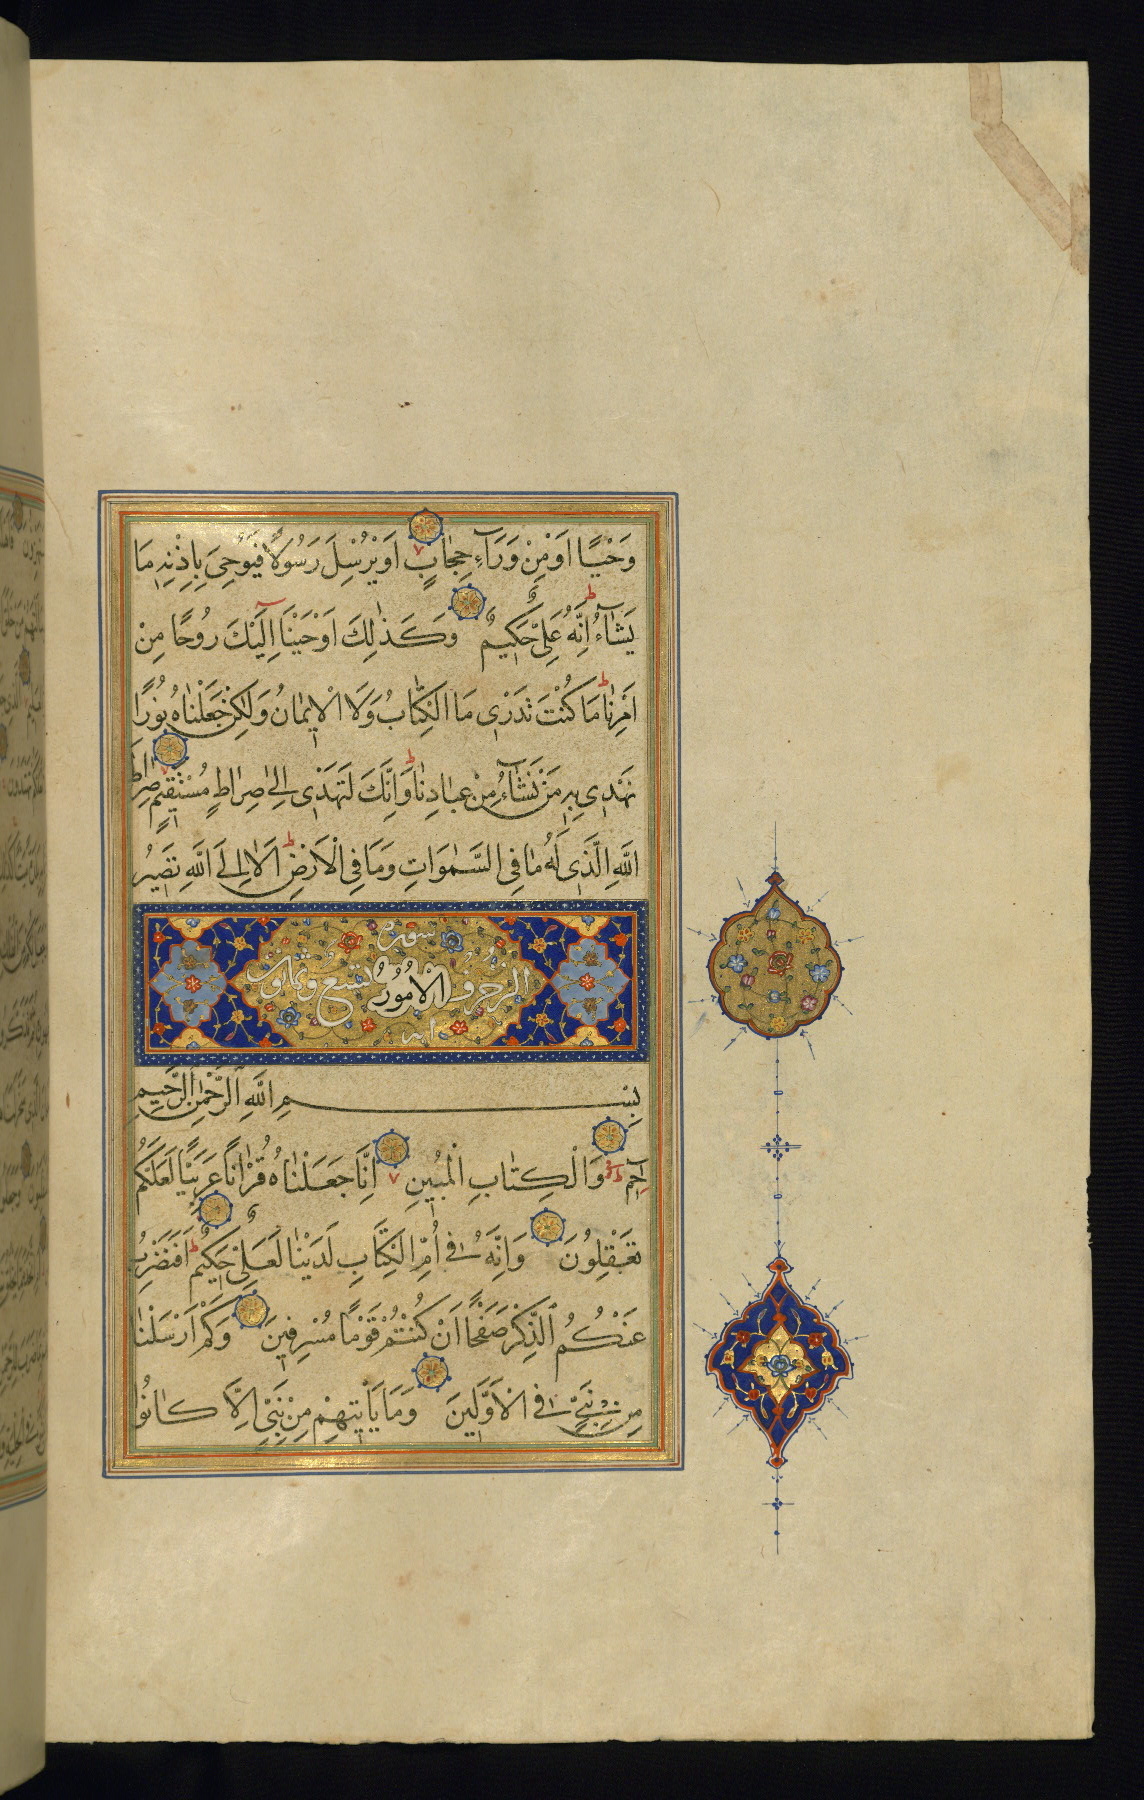 وَحْيًا اَوْ مِنْ وَرَآءِ حِجَابٍ اَوْ يُرْسِلَ رَسُولًا فَيُوحِيَ بِاِذْنِهِ مَا
يَشَآءُ اِنَّهُ عَلِيٌّ حَكِيمٌ وَكَذٰلِكَ اَوْحَيْنَا اِلَيْكَ رُوحًا مِنْ
اَمْرِنَا مَا كُنْتَ تَدْرِي مَا الْكِتَابُ وَلَا الْاِيمَانُ وَلٰكِنْ جَعَلْنَاهُ نُورًا
نَهْدِي بِهِ مَنْ نَشَآءُ مِنْ عِبَادِنَا وَاِنَّكَ لَتَهْدِي اِلٰى صِرَاطٍ مُسْتَقِيمٍ صِرَاطِ
اللّٰهِ الَّذِي لَهُ مَا فِي السَّمٰوَاتِ وَمَا فِي الْاَرْضِ اَلَا اِلَى اللّٰهِ تَصِيرُ
سورة
الزخرف الْاُمُورُ تسع وثمانون
اية
بِسْمِ اللّٰهِ الرَّحْمٰنِ الرَّحِيمِ
حٰمٓ وَالْكِتَابِ الْمُبِينِ اِنَّا جَعَلْنَاهُ قُرْاٰنًا عَرَبِيًّا لَعَلَّكُمْ
تَعْقِلُونَ وَاِنَّهُ فِي اُمِّ الْكِتَابِ لَدَيْنَا لَعَلِيٌّ حَكِيمٌ اَفَنَضْرِبُ
عَنْكُمُ الذِّكْرَ صَفْحًا اَنْ كُنْتُمْ قَوْمًا مُسْرِفِينَ وَكَمْ اَرْسَلْنَا
مِنْ نَبِيٍّ فِي الْاَوَّلِينَ وَمَا يَاْتِيهِمْ مِنْ نَبِيٍّ اِلَّا كَانُوا